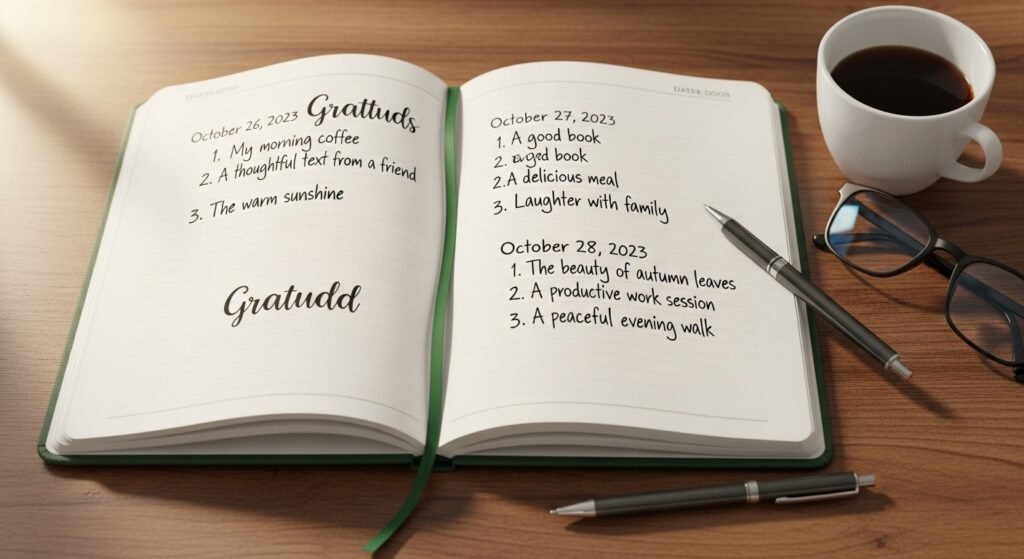 October 26, 2023 Grattuds
1. My morning coffee
2. A thoughtful text from a friend
3. The warm sunshine
Gratudd
October 27, 2023
1. A good book
2. book
2. A delicious meal
3. Laughter with family
October 28, 2023
1. The beauty of autumn leaves
2. A productive work session
3. A peaceful evening walk